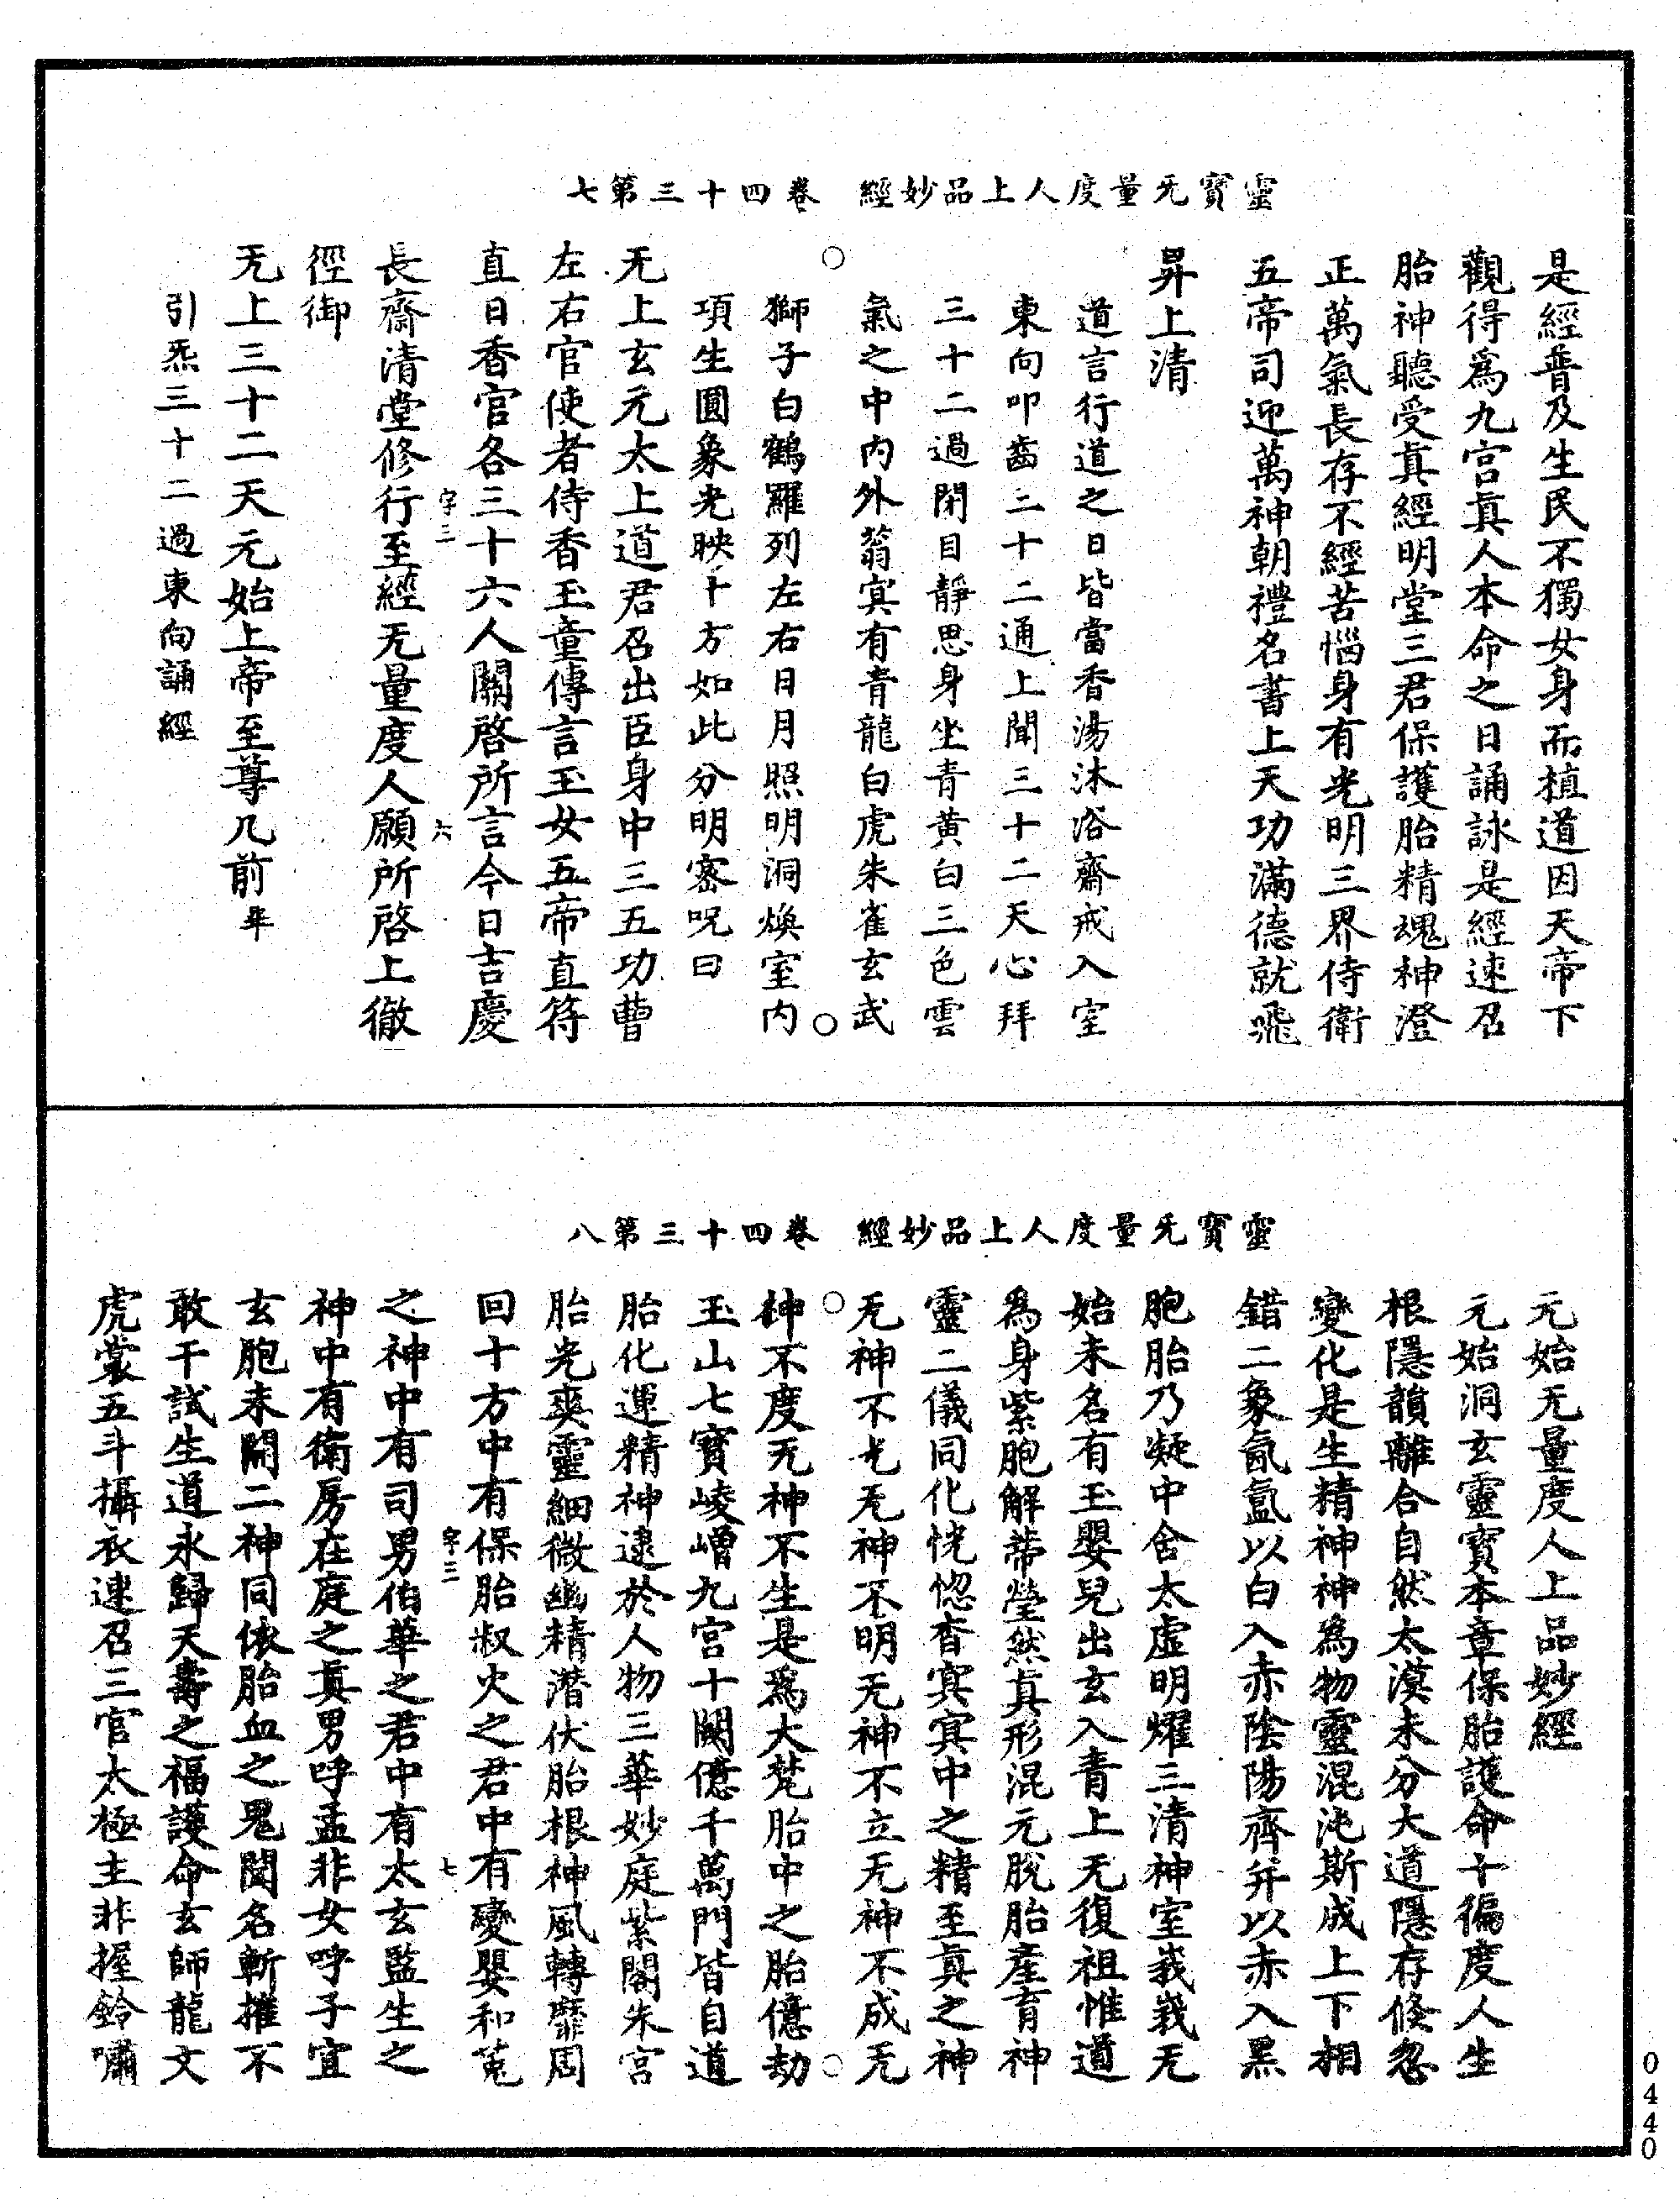 靈寶无量度人上品妙經　卷四十三第七
是經普及生民不獨女身而植道因天帝下
觀得爲九宮眞人本命之日誦詠是經速召
胎神聽受眞經明堂三君保護胎精魂神澄
正萬氣長存不經苦惱身有光明三界侍衛
五帝司迎萬神朝禮名書上天功滿德就飛
昇上清
道言行道之日皆當香湯沐浴齋戒入室
東向叩齒三十二通上聞三十二天心拜
三十二過閉目靜思身坐青黄白三色雲
氣之中内外蓊冥有青龍白虎朱雀玄武
獅子白鶴羅列左右日月照明洞煥室内
項生圓象光映十方如此分明密呪曰
无上玄元太上道君召出臣身中三五功曹
左右官使者侍香玉童傳言玉女五帝直符
直日香官各三十六人關啓所言今日吉慶
字三　六
長齋清堂修行至經无量度人願所啓上徹
徑御
无上三十二天元始上帝至尊几前畢
引炁三十二過東向誦經
靈寶无量度人上品妙經　卷四十三第八
元始无量度人上品妙經
元始洞玄靈寶本章保胎護命十徧度人生
根隱韻離合自然太漠未分大道隱存倏忽
變化是生精神神爲物靈混沌斯成上下相
錯二象氤氲以白入赤陰陽齊并以赤入黑
胞胎乃凝中舍太虚明耀三清神室峩峩无
始未名有玉嬰兒出玄入青上无復祖惟道
爲身紫胞解蔕瑩然真形混元脫胎產育神
靈二儀同化恍惚杳冥冥中之精至真之神
无神不光无神不明无神不立无神不成无
神不度无神不生是爲大梵胎中之胎億劫
玉山七寶崚嶒九宮十闕億千萬門皆自道
胎化運精神逮於人物三華妙庭紫閣朱宮
胎光爽靈細微幽精潛伏胎根神風轉靡周
回十方中有保胎叔火之君中有變嬰和菟
字三　七
之神中有司男伯華之君中有太玄監生之
神中有衛房在庭之真男呼孟非女呼子宜
玄胞未開二神同依胎血之鬼聞名斬摧不
敢干試生道永歸天壽之福護命玄師龍文
虎裳五斗攝衣速召三官太極主非握鈴嘯
0440